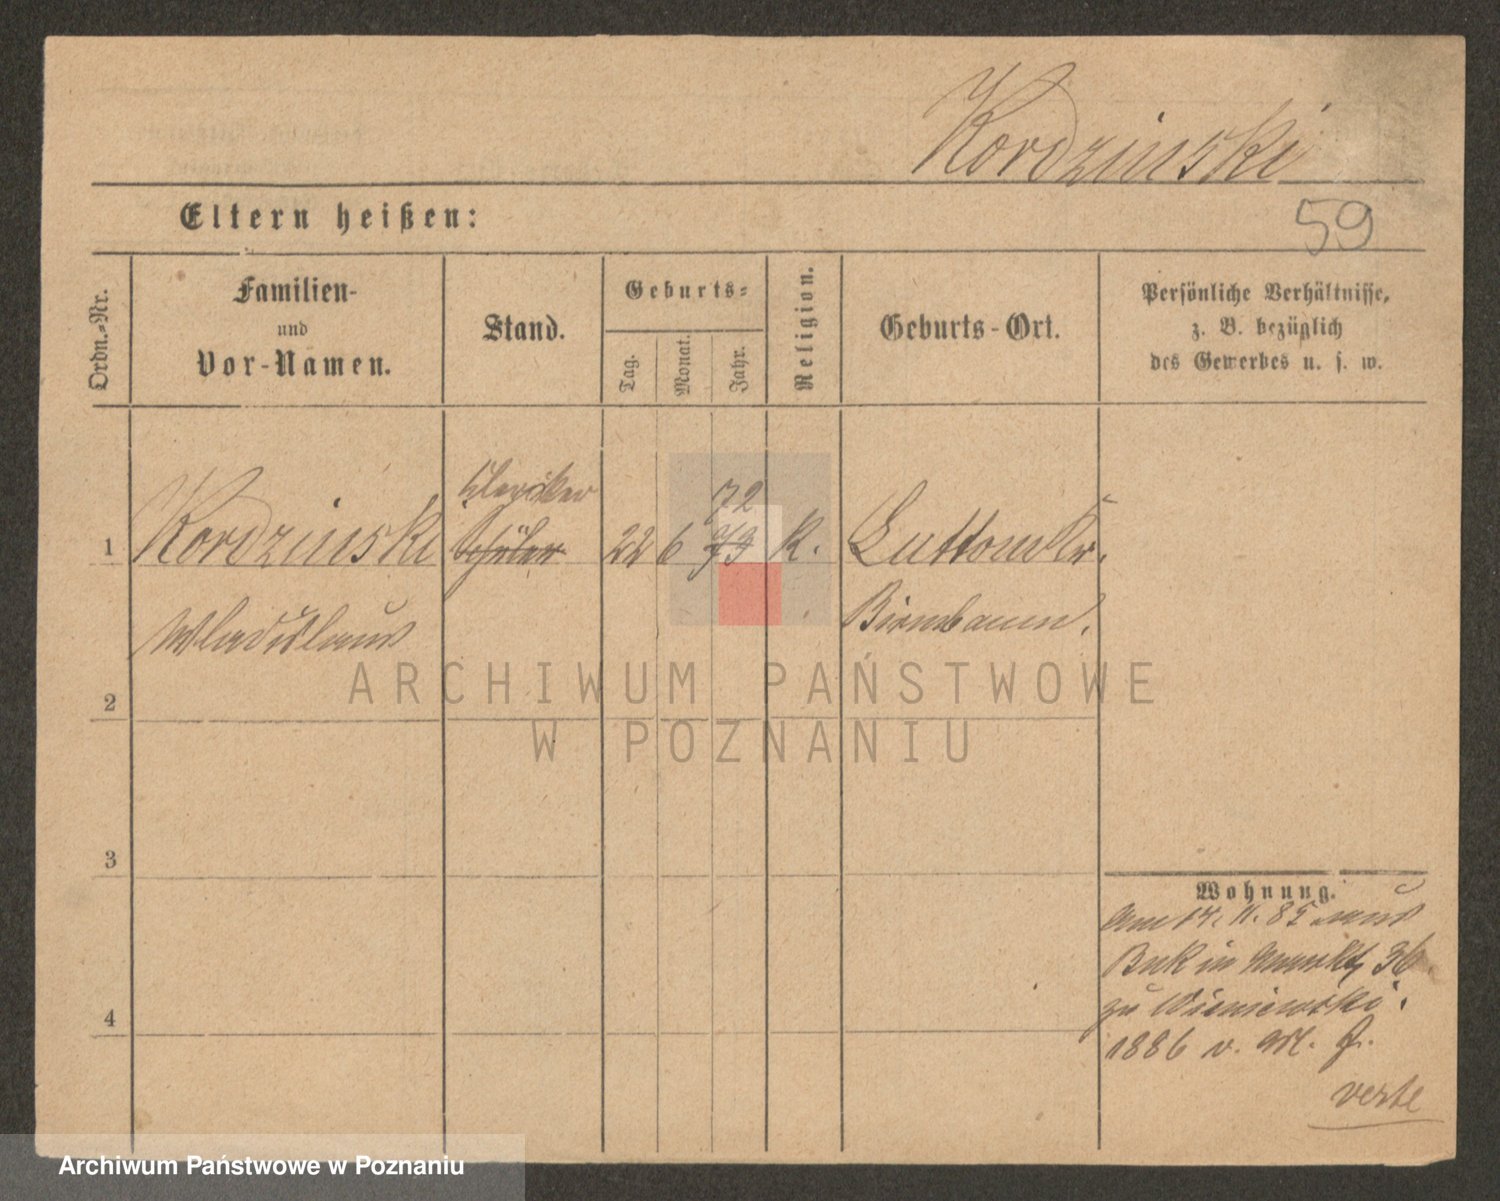 Kordzinski
59
Eltern heißen:
Ordn.-Nr.
Familien-
und
Vor-Namen.
Stand.
Geburts-
Tag.
Monat.
Jahr.
Religion.
Geburts-Ort.
Persönliche Verhältnisse,
z. B. bezüglich
des Gewerbes u. s. w.
Kleriker
72
1 Kordzinski Schüler 22 6 73 K. Luttom Kr.
Wladislaus Birnbaum.
ARCHIWUM PAŃSTWOWE
W POZNANIU
2
3
4
Wohnung.
Am 14. 11. 85 aus
Buk in Markt 36.
zu Wisniewski.
1886 v. M. G.
verte
Archiwum Państwowe w Poznaniu